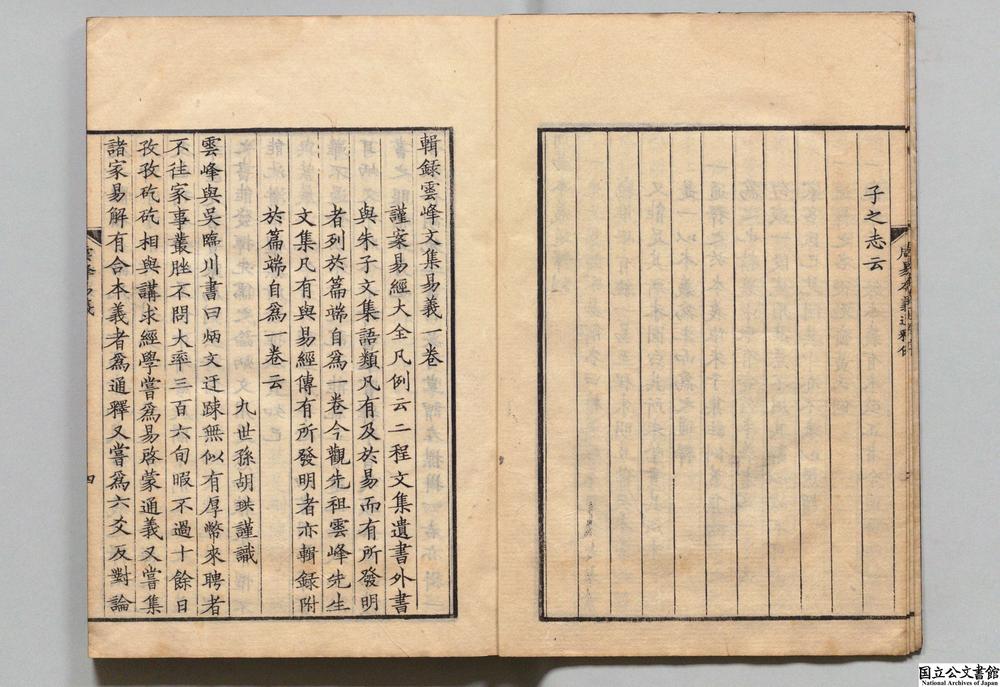 子之志云
輯録雲峰文集易義一卷
謹案易經大全凡例云二程文集遺書外書
與朱子文集語類凡有及於易而有所發明
者列於篇端自爲卷今觀先祖雲峰先生
文集凡有與易經傳有所發明者亦輯録附
於篇端自爲一卷云
九世孫胡珙謹識
雲峰與吴臨川書曰炳文迂踈無似有厚幣來聘者
不往家事叢脞不問大率三百六旬暇不過十餘日
孜孜矻矻相與講求經學嘗爲易啓蒙通義又嘗集
諸家易解有合本義者爲通釋又嘗爲六爻反對論
四
国立公文書館
National Archives of Japan